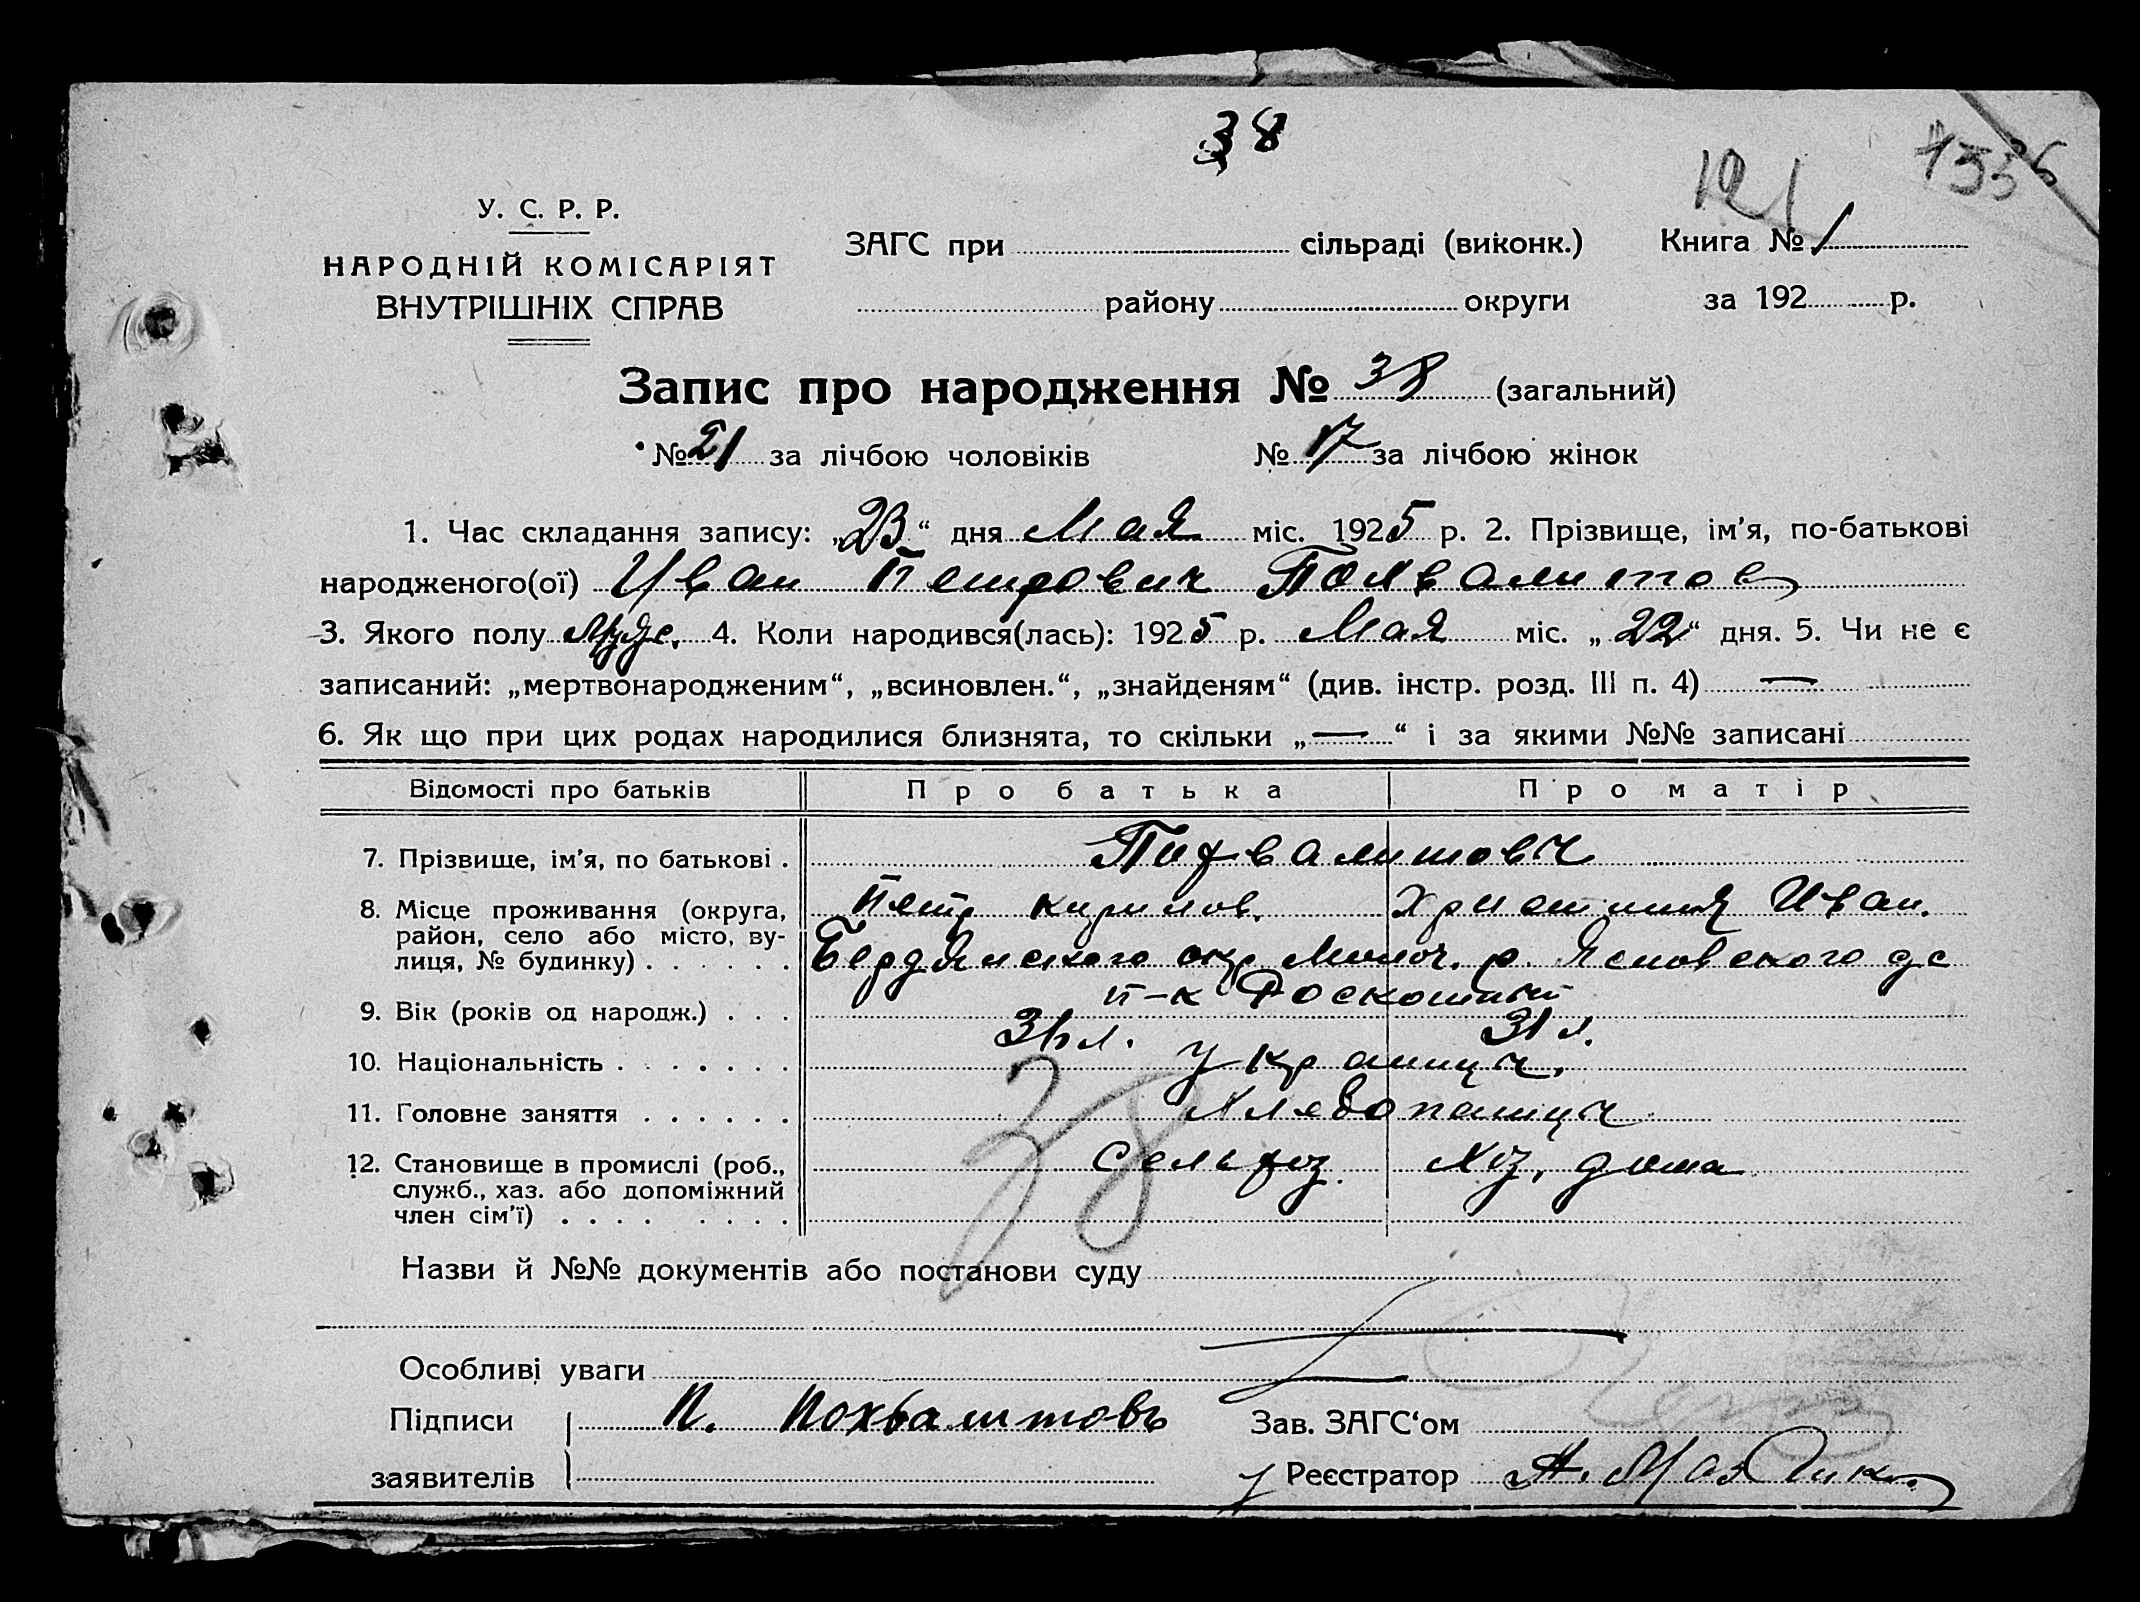 38
121
1336
У. С. Р. Р.
НАРОДНІЙ КОМІСАРІЯТ
ВНУТРІШНІХ СПРАВ
ЗАГС при сільраді (виконк.) Книга № 1
району округи за 192 р.
Запис про народження № 38 (загальний)
№ 21 за лічбою чоловіків № 17 за лічбою жінок
1. Час складання запису: „23“ дня Мая міс. 1925 р. 2. Прізвище, ім'я, по-батькові
народженого(ої) Иван Петрович
3. Якого полу Муж. 4. Коли народився(лась): 1925 р. Мая міс. „22“ дня. 5. Чи не є
записаний: „мертвонародженим“, „всиновлен.“, „знайденям“ (див. інстр. розд. III п. 4) —
6. Як що при цих родах народилися близнята, то скільки „—“ і за якими №№ записані
Відомості про батьків Про батька Про матір
7. Прізвище, ім'я, по батькові .
8. Місце проживання (округа, Петр Кирилов. Христиния Иван.
район, село або місто, ву-
лиця, № будинку) . . . . . . Бердянского окр. р. с
п-к Роскошный
9. Вік (років од народж.) . . . 36 л. 31 л.
10. Національність . . . . . . . украинцы.
11. Головне заняття . . . . . . Хлебопашцы
12. Становище в промислі (роб., Сельхоз. Хоз. дома
служб., хаз. або допоміжний
член сім'ї) . . . . . . . .
38
Назви й №№ документів або постанови суду
Особливі уваги
Підписи П. Похвалитовъ Зав. ЗАГС'ом
заявителів Реєстратор А.